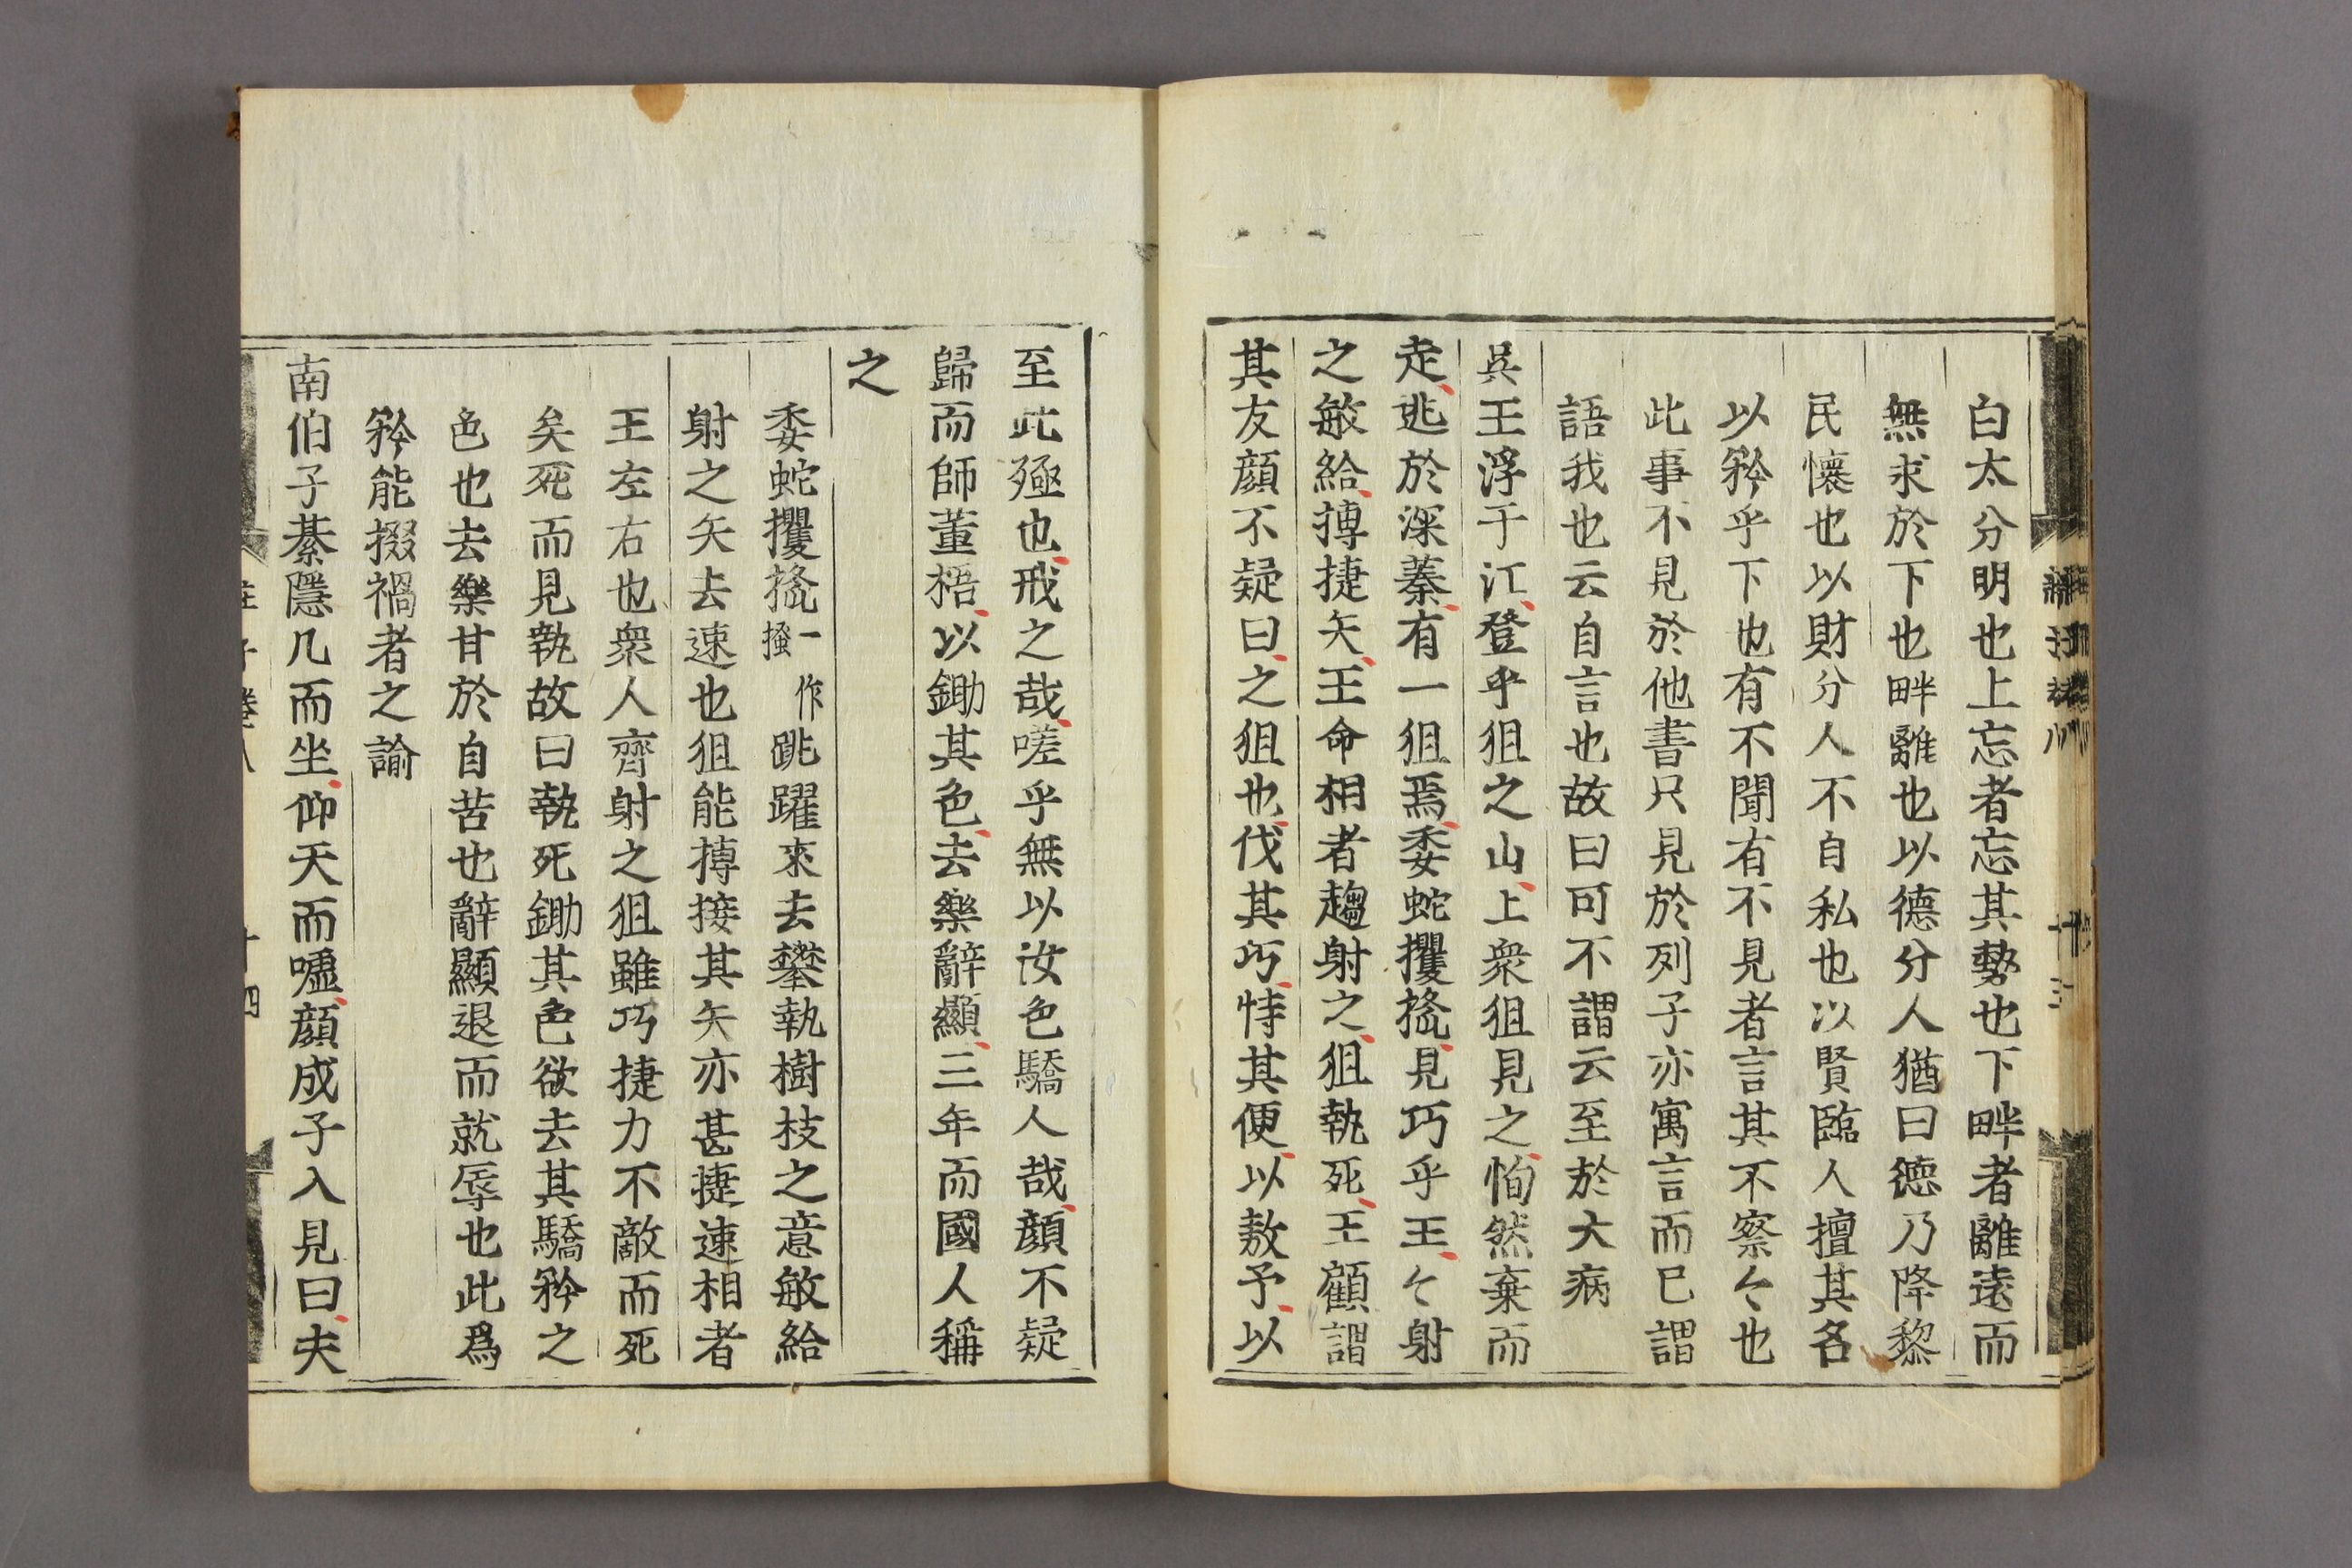 白太分明也上忘者忘其勢也下畔者離遠而
無求於下也畔離也以德分人猶曰德乃降黎
民懷也以財分人不自私也以賢臨人擅其名
以矜乎下也有不聞有不見者言其不察々也
此事不見於他書只見於列子亦寓言而已謂
語我也云自言也故曰可不謂云至於大病
吳王浮于江登乎狙之山上衆狙見之恂然棄而
走逃於深蓁有一狙焉委蛇攫搔見巧乎王々射
之敏給搏捷矢王命相者趨射之狙執死王顧謂
其友顔不疑曰之狙也伐其巧恃其便以敖予以
至此殛也戒之哉嗟乎無以汝色驕人哉顔不疑
歸而師董梧以鋤其色去樂辭顯三年而國人稱
之
委蛇攫搔一作搔跳躍來去攀執樹枝之意敏給
射之矢去速也狙能搏接其矢亦甚捷速相者
王左右也衆人齊射之狙雖巧捷力不敵而死
矣死而見執故曰執死鋤其色欲去其驕矜之
色也去樂甘於自苦也辭顯退而就辱也此爲
矜能掇禍者之諭
南伯子綦隱几而坐仰天而噓顔成子入見曰夫